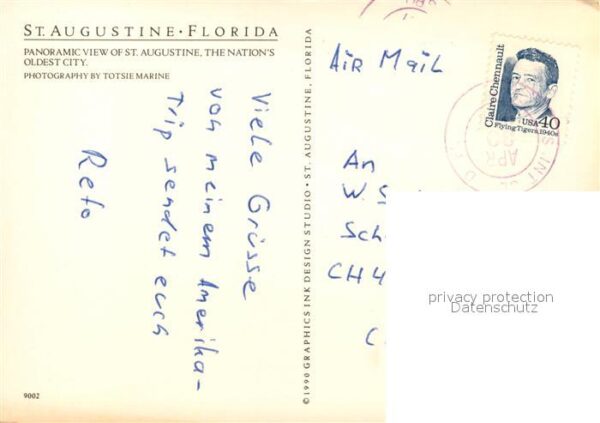 ST. AUGUSTINE · FLORIDA
PANORAMIC VIEW OF ST. AUGUSTINE, THE NATION'S
OLDEST CITY.
PHOTOGRAPHY BY TOTSIE MARINE
Viele Grüsse
von meinem Amerika-
Trip sendet euch
Reto
9002
© 1990 GRAPHICS INK DESIGN STUDIO · ST. AUGUSTINE, FLORIDA
Air Mail
Claire Chennault
USA 40
Flying Tigers, 1940s
APR
An
W. S
Sch
CH 4
C
privacy protection
Datenschutz